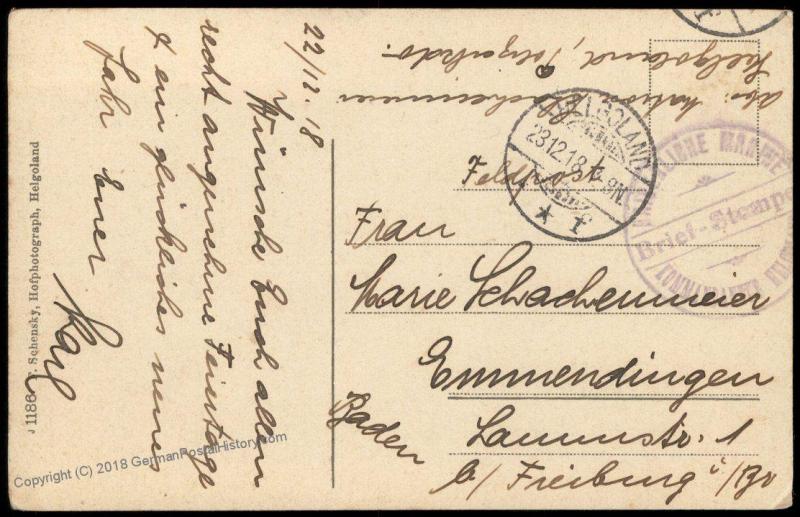 22/12. 18
Wünsche Euch allem
recht angenehme Feiertage
& ein glückliches neues
Jahr Euer
Karl
J 1186 F. Schensky, Hofphotograph, Helgoland
Helgoland,
HELGOLAND
23.12.18. 8-9N.
* f
Feldpost
KAISERLICHE MARINE
Brief-Stempel
Frau
Marie Schachenmeier
Emmendingen
Lammstr. 1
b/ Freiburg i/Br
Baden
Copyright (C) 2018 GermanPostalHistory.com